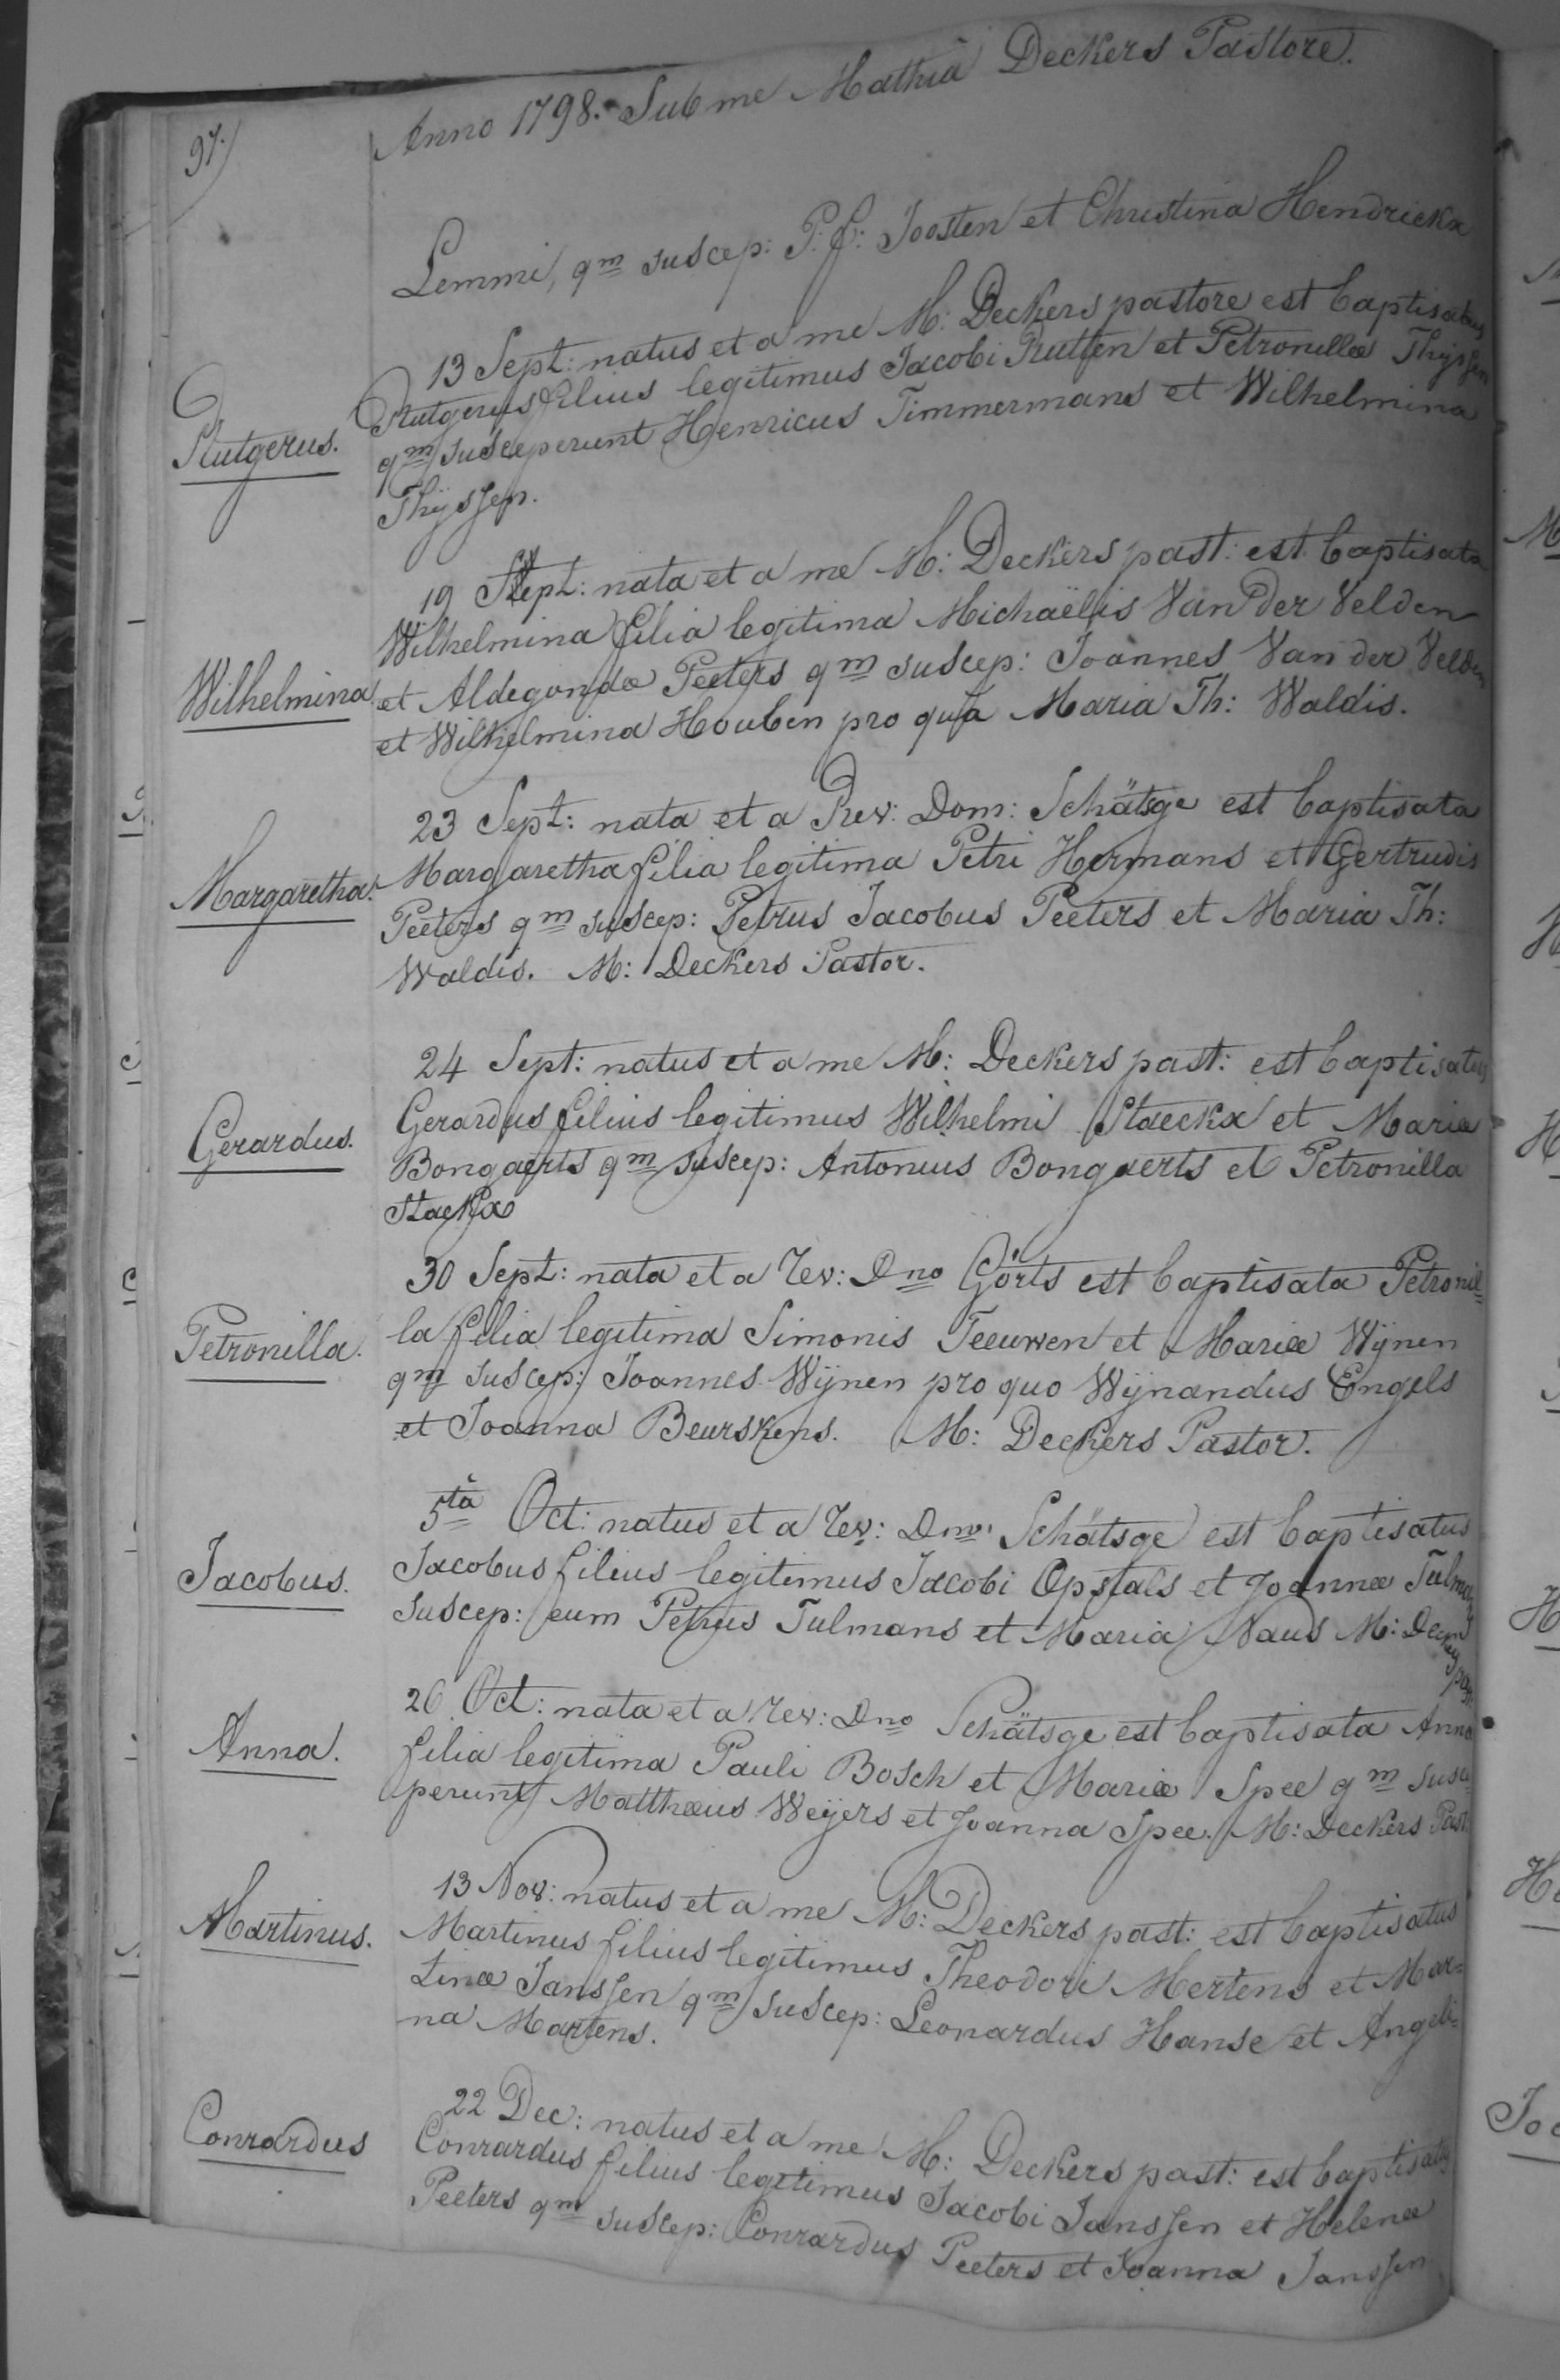 97.)
Anno 1798. Sub me Mathia Deckers Pastore.
Lemmi, qm suscep: P: f: Joosten et Christina Hendrickx
13 Sept: natus et a me M: Deckers pastore est baptisatus
Rutgerus.
Rutgerus filius legitimus Jacobi Rutten et Petronillæ Thyssen
qm susceperunt Henricus Timmermans et Wilhelmina
Thijssen.
19 Sept: nata et a me M: Deckers past: est baptisata
Wilhelmina filia legitima Michaëlis Van Der Velden
Wilhelmina.
et Aldegondæ Peeters qm suscep: Joannes Van der Velden
et Wilhelmina Houben pro qua Maria Th: Waldis.
23 Sept: nata et a Rev: Dom: Schätsge est baptisata
Margaretha.
Margaretha filia legitima Petri Hermans et Gertrudis
Peeters qm suscep: Petrus Jacobus Peeters et Maria Th:
Waldis. M: Deckers Pastor.
24 Sept: natus et a me M: Deckers past: est baptisatus
Gerardus.
Gerardus filius legitimus Wilhelmi Staeckx et Mariæ
Bongaerts qm suscep: Antonius Bongaerts et Petronilla
Staeckx
30 Sept: nata et a rev: Dno Görts est baptisata Petronil=
Petronilla.
la filia legitima Simonis Teeuwen et Mariæ Wijnen
qm suscep: Joannes Wijnen pro quo Wijnandus Engels
et Joanna Beurskens. M: Deckers Pastor.
5ta Oct: natus et a rev: Dno Schätsge est baptisatus
Jacobus.
Jacobus filius legitimus Jacobi Opstals et Joannæ Tulmans
suscep: eum Petrus Tulmans et Maria Naus M: Deckers past:
26 Oct: nata et a rev: Dno Schätsge est baptisata Anna
Anna.
filia legitima Pauli Bosch et Mariæ Spee qm susce=
perunt Matthæus Weijers et Joanna Spee. M: Deckers Past:
13 Nov: natus et a me M: Deckers past: est baptisatus
Martinus.
Martinus filius legitimus Theodori Mertens et Mar=
tinæ Janssen qm suscep: Leonardus Hanse et Angeli=
na Martens.
22 Dec: natus et a me M: Deckers past: est baptisatus
Conrardus
Conrardus filius legitimus Jacobi Janssen et Helenæ
Peeters qm suscep: Conrardus Peeters et Joanna Janssen